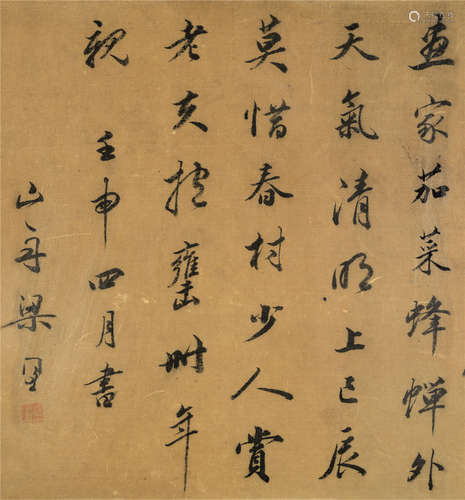 畫家茄菜蜂蟬外
天氣清明上巳辰
莫惜春村少人賞
老夫抱甕卌年
親 壬申四月書
山舟梁